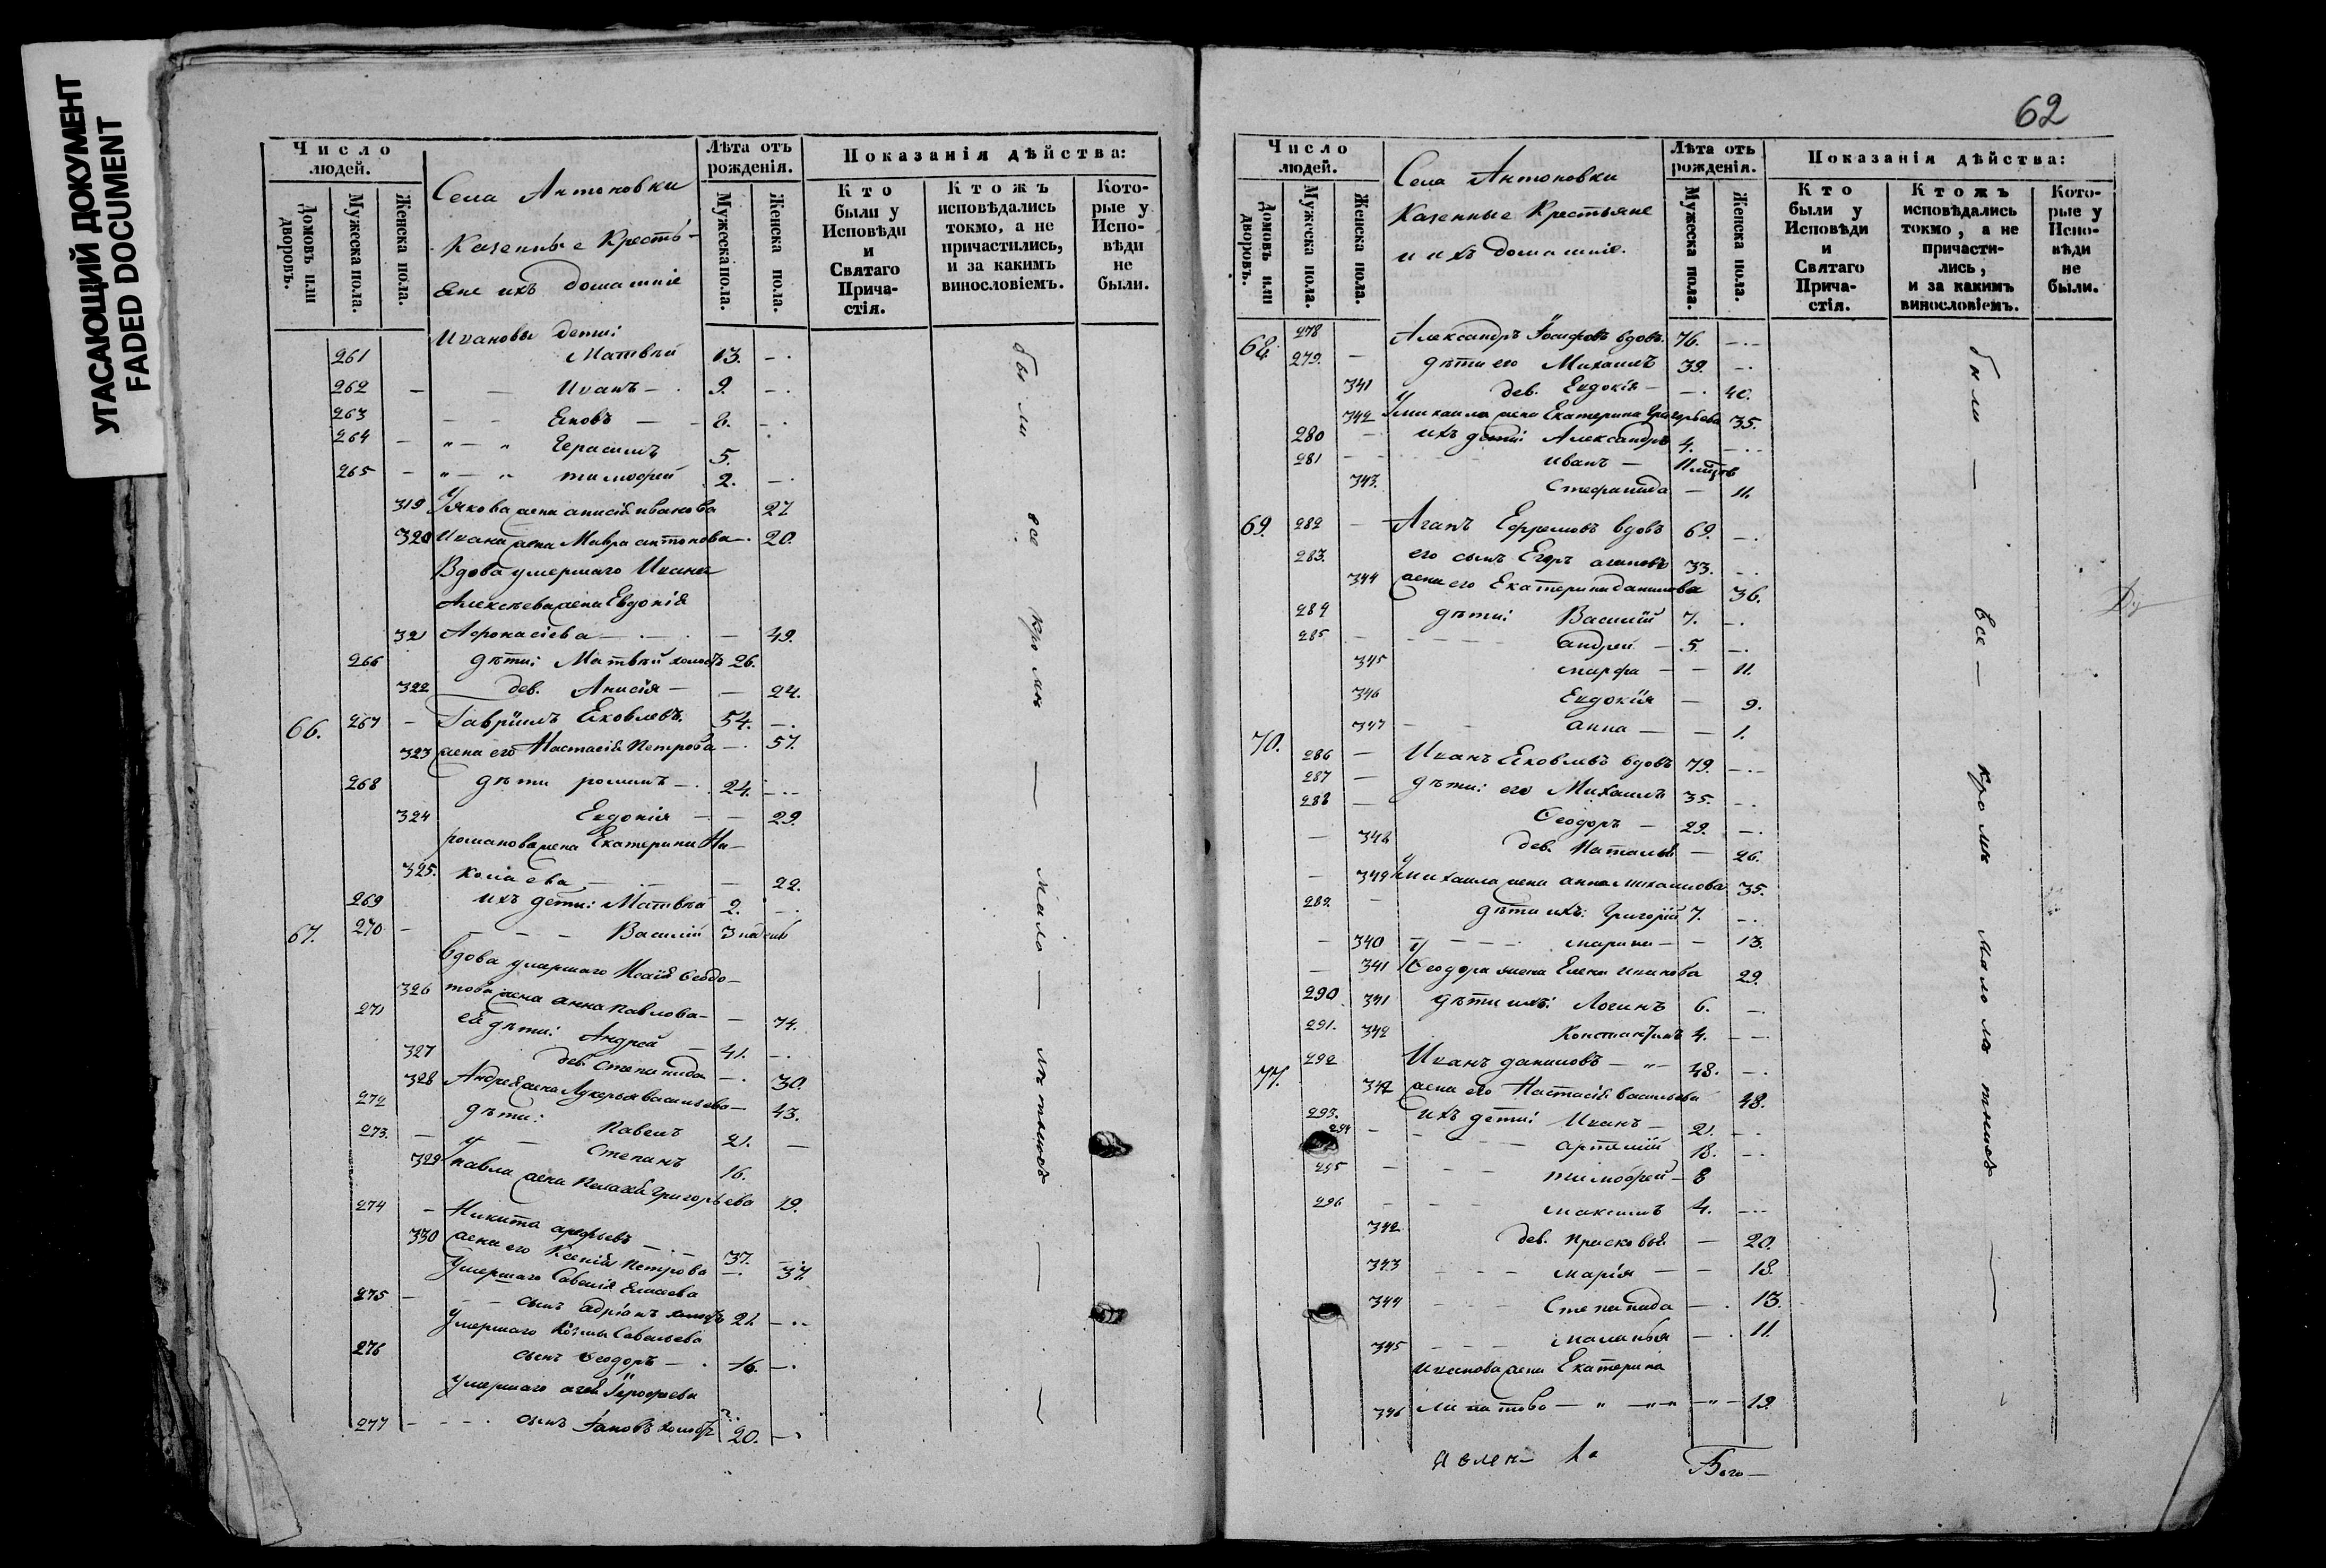 УГАСАЮЩИЙ ДОКУМЕНТ
FADED DOCUMENT
Число людей.
Домовъ или дворовъ.
Мужеска пола.
Женска пола.
Села Антоновки
Казенные Кресть-
яне ихъ домашніе
Лѣта отъ рожденія.
Мужеска пола.
Женска пола.
Показанія дѣйства:
Кто были у Исповѣди и Святаго Прича-стія.
Ктожъ исповѣдались токмо, а не причастились, и за какимъ винословіемъ.
Кото-рые у Испо-вѣди не были.
Ивановы дети:
261 Матвѣй 13. -.
262 - - Иванъ - . 9. -.
263 - - Яковъ - - 8. -.
264 - " - " Герасимъ 5.
265 - " - " тимофей 2. -.
319 Якова жена анисія иванова 27
320 Ивана жена Мавра антонова -. 20.
Вдова умершаго Ивана
Алексѣева жена Евдокія
321 Афонасіева - . - . - 49.
266 дѣти: Матвѣй холостъ 26.
322 дев. Анисія - - 24.
66. 267 - Гавріилъ Яковлевъ. 54. -.
323 жена его Настасія Петрова -. 57.
268 дѣти романъ -. 24. -..
324 Евдокія - - 29.
романова жена Екатерина Ни-
325. колаева - - 22.
269 ихъ дети: Матвѣй 2. -.
67. 270 - - - - Василій 3 недель
Вдова умершаго Исаія Ѳедо-
326 това жена анна павлова - - 74.
271 ея дѣти: Андрей - 41. -.
327 дев. Степанида -. 30.
328 Андрея жена Лукерья васильева - 43.
272 дѣти: Павелъ 21. -
273. - - Степанъ 16.
329 павла жена Пелагея Григорьева 19.
274 - Никита арефьевъ - . - 37. -.
330 жена его Ксенія Петрова -. 37.
умершаго Савелія Елисеева
275 - - - сынъ адріанъ холостъ 21 -..
умершаго Козмы Савельева
276 сынъ Ѳеодоръ -. 16. -.
умершаго
277 - - - . сынъ Яковъ холостъ 20. -.
были все кромѣ — мало — лѣтныхъ —
62
Число людей.
Домовъ или дворовъ.
Мужеска пола.
Женска пола.
Села Антоновки
Казенные Крестьяне
и ихъ домашніе.
Лѣта отъ рожденія.
Мужеска пола.
Женска пола.
Показанія дѣйства:
Кто были у Исповѣди и Святаго Прича-стія.
Ктожъ исповѣдались токмо, а не причасти-лись, и за какимъ винословіемъ.
Кото-рые у Испо-вѣди не были.
68. 278 Александръ Іосифовъ вдовъ. 76. -.-
279. - дѣти его Михаилъ 39. -.
341 дев. Евдокія - -. 40.
342 Михаила жена Екатерина Григорьева 35.
280 - ихъ дети: Александръ 4. -..
281 - иванъ -
343. Стефанида - 11.
69. 282 - Агапъ Ефремовъ вдовъ 69. -.
283. его сынъ Егоръ агаповъ 33. -.
344 жена его Екатерина данилова 36.
284 дѣти: Василій 7. -.
285 - - - - - андрей - 5. -.
345 марфа - - 11.
346 Евдокія - 9.
347 - - анна - - 1.
70. 286 - Иванъ Яковлевъ вдовъ 79. -.-
287 - дѣти: его Михаилъ 35. -.
288 - Ѳеодоръ - 29. -.
- 348 дев. Наталья - 26.
- 349 михаила жена анна михаилова 35.
289. - дѣти ихъ: Григорій 7. -.
- 340 - - - - марина - - 13.
- 341 Ѳеодора жена Елена иванова 29.
290 341 дѣти ихъ: Логинъ 6. -.
291. 342 Константинъ 4. -
71. 292 Иванъ даниловъ - " - 48. -.
342 жена его Настасія васильева 48.
293. ихъ дети: Иванъ - 21. -.
294 - - - - артемій 18. -.
295 - - - - тимофей - 8
296 - - - максимъ 4. -..
342 дев. прасковья - 20.
343 - - - марія - - 18.
344 - - - Степанида -. 13.
345 - - - маланья -. 11.
иванова жена Екатерина
346 - " - " - " - 19.
были — все — кромѣ малолѣтныхъ —